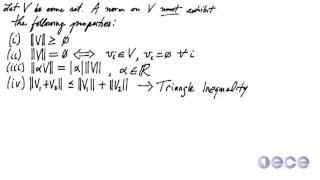 Let V be some set. A norm on V must exhibit
the following properties:
(i) ‖V‖ ≥ 0
(ii) ‖V‖ = 0 ⟺ vᵢ ∈ V, vᵢ = 0 ∀ i
(iii) ‖αV‖ = |α|‖V‖, α ∈ ℝ
(iv) ‖V₁+V₂‖ ≤ ‖V₁‖ + ‖V₂‖ → Triangle Inequality
ece